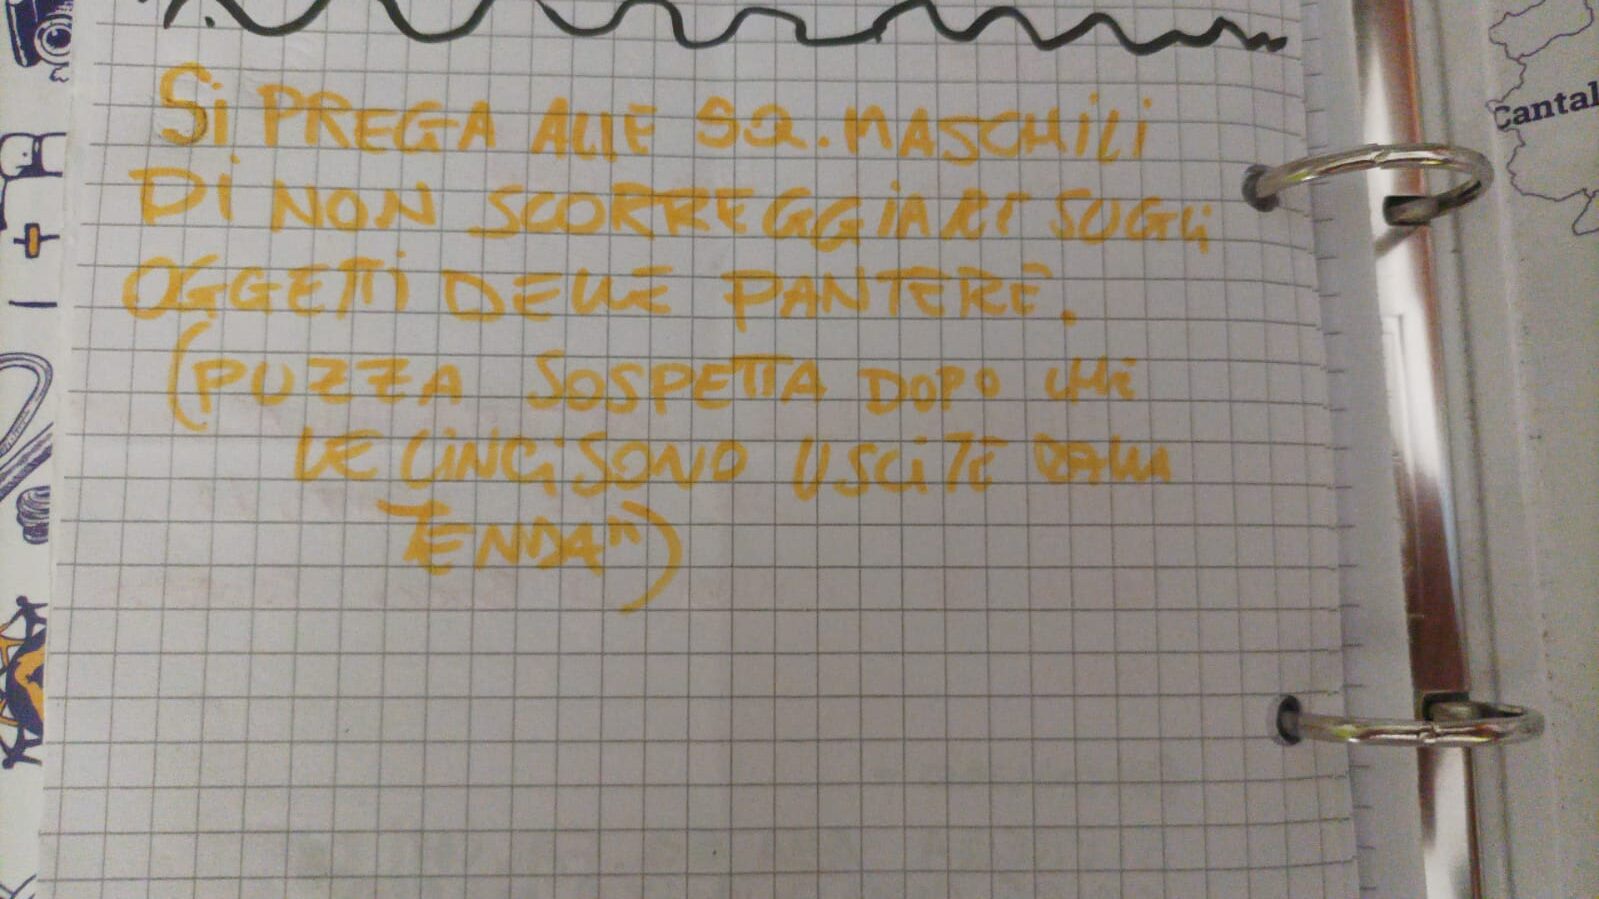 Si PREGA ALLE SQ. MASCHILI
Di NON SCORREGGIARE SUGLi
OGGETTI DELLE PANTERE.
(PUZZA SOSPETTA DOPO CHE
LE CINCI SONO USCITE DALLA
TENDA")
Cantal